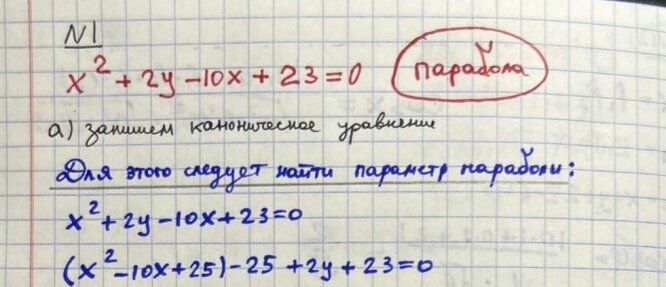 N1
x² + 2y - 10x + 23 = 0 парабола
а) запишем каноническое уравнение
Для этого следует найти параметр параболы:
x² + 2y - 10x + 23 = 0
(x² - 10x + 25) - 25 + 2y + 23 = 0